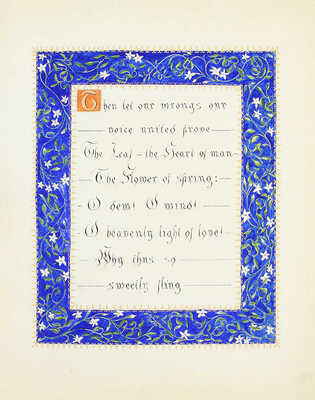 Then let our wrongs our
voice united prove
The Leaf - the Heart of man
The Flower of spring:
O dew! O wind!
O heavenly light of love!
Why thus so
sweetly fling